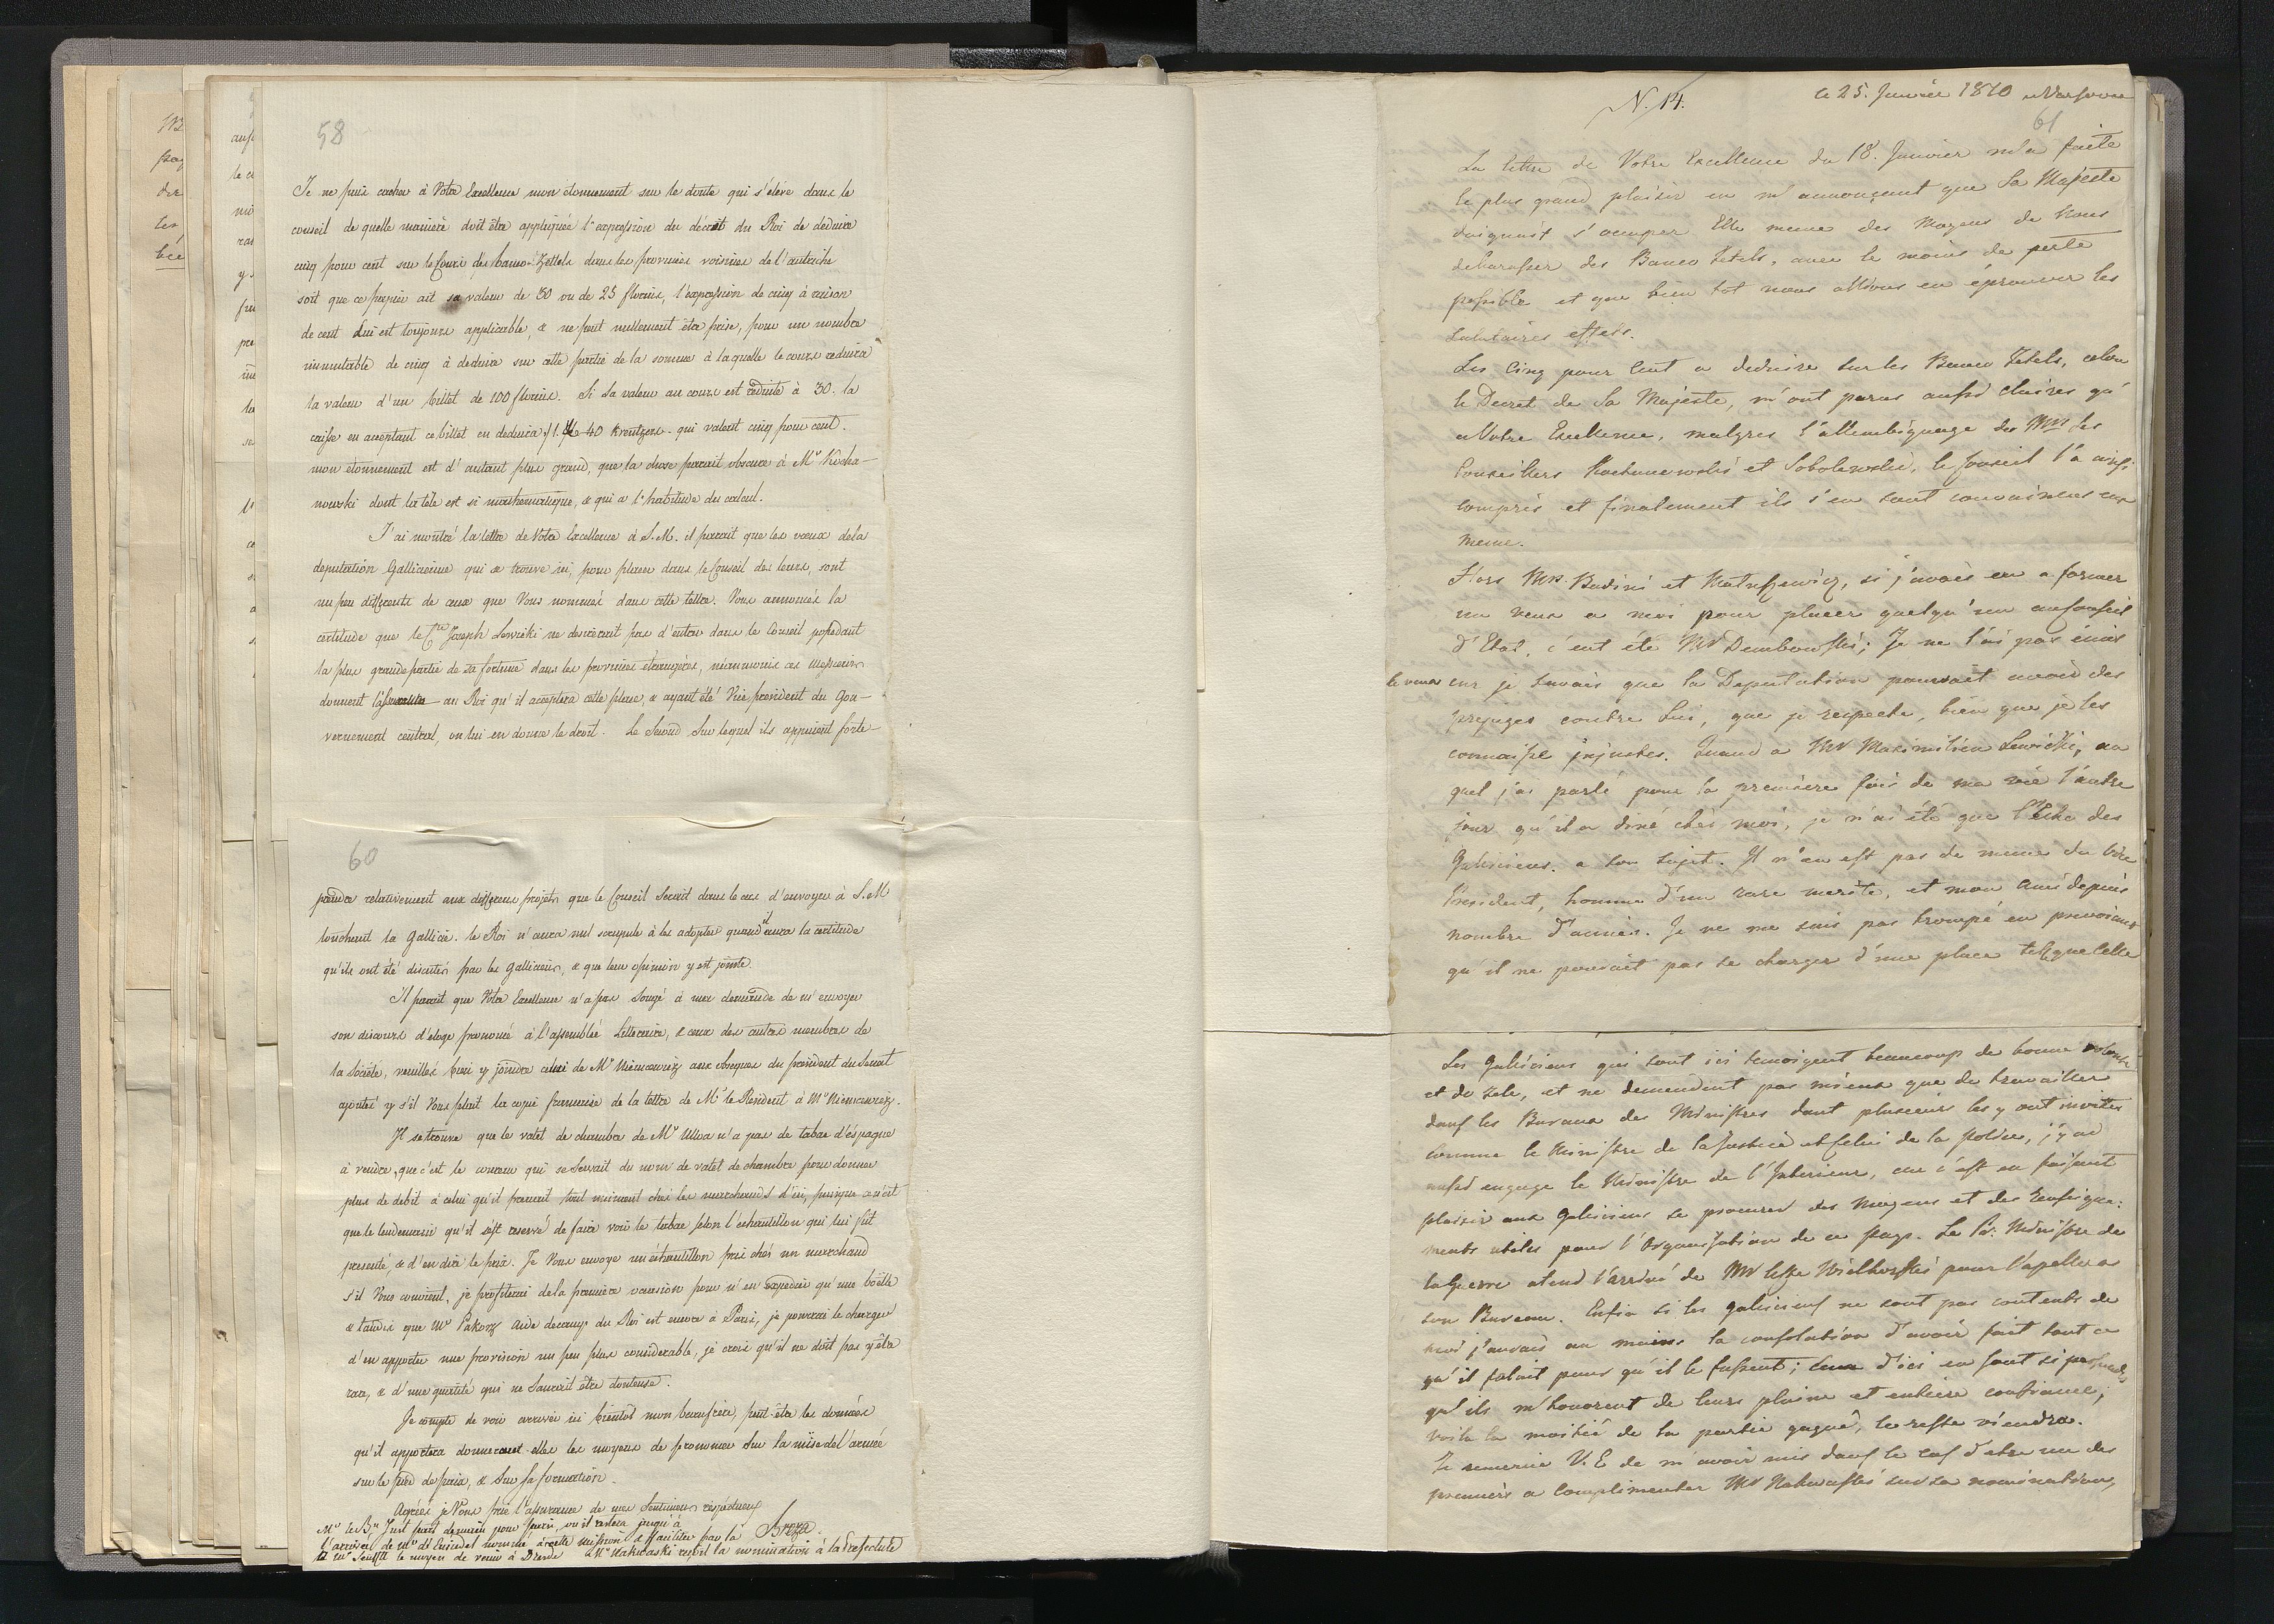 58
Je ne puis cacher à Votre Excellence mon étonnement sur le doute qui s'élève dans le
conseil de quelle manière doit être appliquée l'expression du décret du Roi de deduire
cinq pour cent sur le Cours des banco-Zettels dans les provinces voisines de l'autriche
soit que ce papier ait sa valeur de 30 ou de 25 florins, l'expression de cinq à raison
de cent lui est toujours applicable, & ne peut nullement être prise, pour un nombre
immutable de cinq à deduire sur cette partie de la somme à laquelle le cours reduira
la valeur d'un billet de 100 florins. Si sa valeur au cours est reduite à 30. la
caisse en acceptant ce billet en deduira f 1. 40 Kreutzers qui valent cinq pour cent.
mon étonnement est d'autant plus grand, que la chose parait obscure à Mr Kocha-
nowski dont la tête est si mathematique, & qui a l'habitude du calcul.
J'ai montré la lettre de Votre Excellence à S.M. il parait que les voeux de la
deputation Gallicienne qui se trouve ici, pour placer dans le Conseil des leurs, sont
un peu differents de ceux que Vous nommés dans cette lettre. Vous annoncés la
certitude que le Cte Joseph Sewieki ne desireroit pas d'entrer dans le Conseil possedant
la plus grande partie de sa fortune dans les provinces étrangères, néanmoins ces messieurs
donnent l'assurance au Roi qu'il acceptera cette place, & ayant été Vice president du Gou-
vernement central, on lui en donne le droit. Le Second Sur lequel ils appuient forte-
60
relativement aux differens projets que le Conseil Serait dans le cas d'envoyer à S.M
touchent la Gallicie. le Roi n'aura nul scrupule à les adopter quand il aura la certitude
qu'ils ont été discutés par les Galliciens, & que leur opinion y est jointe.
Il parait que Votre Excellence n'a pas Songé à mes demande de m'envoyer
son discours d'éloge prononcé à l'assemblée Litteraire, & ceux des autres membres de
la Société, veuillés bien y joindre celui de Mr Niemcewicz aux obseques du president du Senat
ajoutés y s'il Vous plait la copie francaise de la lettre de Mr le Resident à Mr Niemcewicz.
Il se trouve que le valet de chambre de Mr Ulloa n'a pas de tabac d'éspagne
à vendre, que c'est le qui se Servait du nom de valet de chambre pour donner
plus de debit à celui qu'il prenait tout uniment chés les marchands d'ici, puisque ce n'est
que le lendemain qu'il s'est reservé de faire voir le tabac selon l'échantillon qui lui fut
presenté, & d'en dire le prix. Je Vous envoye un échantillon pris chés un marchand
s'il Vous convient, je profiterai de la premiere occasion pour n'en expedier qu'une boëtte
& tandis que Mr Pakosz aide decamp du Roi est encore à Paris, je pourrai le charger
d'en apporter une provision un peu plus considerable, je crois qu'il ne doit pas y être
rare, & d'une qualité qui ne Saurait être douteuse.
Je compte de voir arriver ici bientôt mon beaufrère, peut-être les données
qu'il apportera donneront-elles les moyens de prononcer Sur la mise de l'armée
sur le pied de paix, & Sur sa formation.
Agréés je Vous prie l'assurance de mes Sentimens respectueux
Breza.
Mr le Bn Just part demain pour Paris, où il restera jusqu'à
l'arrivée de Mr d'Einsiedel nommé à cette mission & faciliter par là
à Mr Senfft le moyen de venir à Dresde Mr Nakwaski reçoit la nomination à la Prefecture
N. 14.
le 25. Janvier 1810 a Varsovie
61
La lettre de Votre Excellence du 18. Janvier m'a faite
le plus grand plaisir en m'annonçant que Sa Majesté
daignait s'occuper Elle meme des Moyens de nous
debarasser des Banco Zetels, avec le moins de perte
possible et que bien tot nous allions en éprouver les
salutaires effets.
Les Cinq pour Cent a deduire sur les Banco Zetels, celon
le Decret de Sa Majesté, m'ont parus aussi claires qu'
a Votre Excellence, malgres l'allembiquage des Mrs les
Conseillers Kochanowski et Sobolewski, le Conseil l'a ainsi
compris et finalement ils s'en sont convaincus eux
meme.
Hors Mrs. Badini et Matuszewicz, si j'avais eu a former
un veux a moi pour placer quelqu'un au Conseil
d'Etat, c'eut été Mr Dembowski; Je ne l'ai pas émis
le veux car je savais que la Deputation pouvait avoir des
prejuges contre Lui, que je respecte, bien que je les
connaisse injustes. Quand a Mr Maximilien Lewicki, au
quel j'ai parlé pour la première fois de ma vie l'autre
jour qu'il a diné chés moi, je n'ai été que l'Echo des
Galiciens a son sujet. Il n'en est pas de meme du Vice
President, homme d'un rare merite, et mon ami depuis
nombre d'années. Je ne me suis pas trompé en prevoiant
qu'il ne pouvait pas se charger d'une place telle que celle
Les Galiciens qui sont ici temoigent beaucoup de bonne volonté
et de zele, et ne demendent pas mieux que de travailler
dans les Bureaux des Ministres dont plusieurs les y ont invités
comme le Ministre de la Justice et Celui de la Police, j'y ai
aussi engagé le Ministre de l'Interieur, car c'est en faisant
plaisir aux Galiciens se procurer des Moyens et des Renseigne:
ments utiles pour l'Organisation de ce pays. Le Pr. Ministre de
la Guerre atend l'arrivé de Mr Wielhorski pour l'apeller a
son Bureau. Enfin si les galiciens ne sont pas contents de
moi j'aurais au moins la consolation d'avoir fait tout ce
qu'il falait pour qu'il le fussent; Ceux d'ici en sont si
qu'ils m'honorent de leurs plaine et entière confiance;
voila la moitié de la partie gagné, le reste viendra.
Je remercie V. E de m'avoir mis dans le cas d'etre un des
premiers a complimenter Mr Nakwaski sur sa nomination,